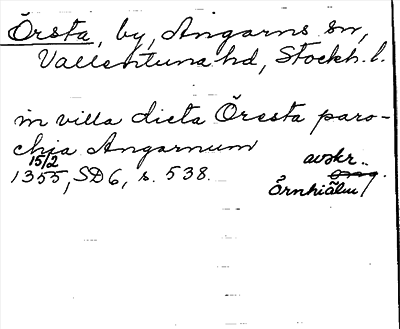 Örsta, by, Angarns sn,
Vallentuna hd, Stockh. l.
in villa dicta Örcsta paro-
chia Angarnum
15/2
1355, SD 6, s. 538.
avskr.
Örnhiälm